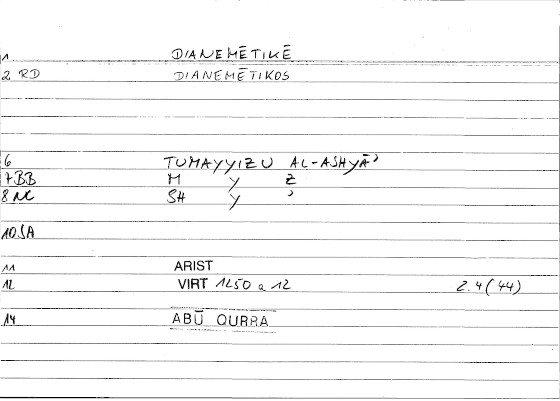 1 DIANEMĒTIKĒ
2 RD DIANEMĒTIKOS
6 TUMAYYIZU AL-ASHYĀʾ
7 BB M Y Z
8 NC SH Y ʾ
10 SA
11 ARIST
12 VIRT 1250 a 12 2.4(44)
14 ABŪ QURRA